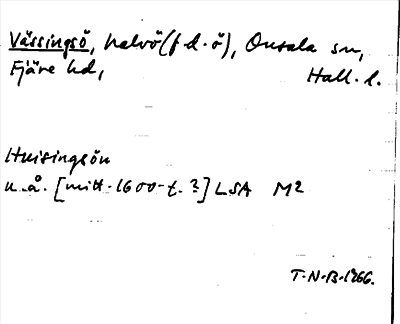 Vässingsö, halvö (f d. ö), Onsala sn,
Fjäre hd, Hall. l.
Huisingsön
u.å. [mitt. 1600-t. ?] LSA M2
T.N.B. 1966.